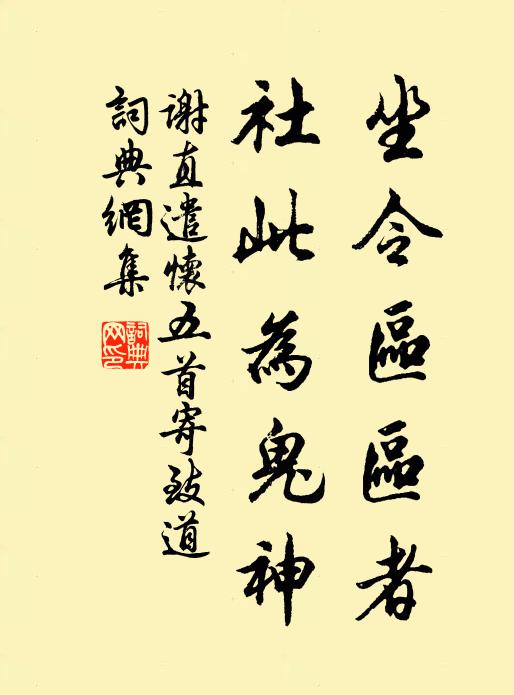 坐令區區者
社此為鬼神
謝直遣懷五首寄致道
詞典網集
詞典網印